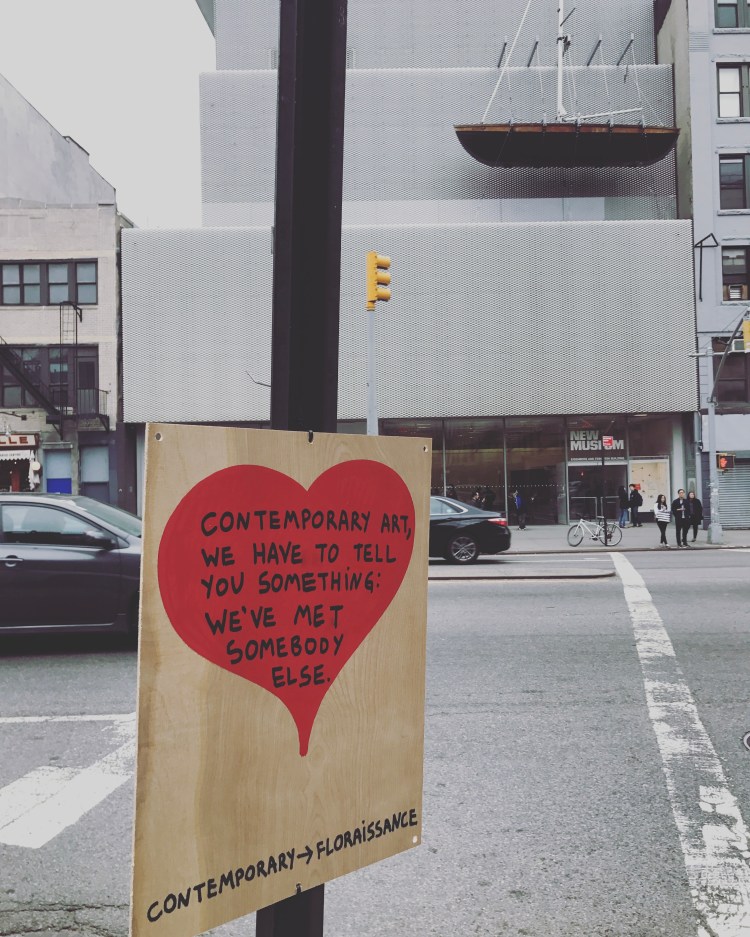 CONTEMPORARY ART,
WE HAVE TO TELL
YOU SOMETHING:
WE'VE MET
SOMEBODY
ELSE.
CONTEMPORARY→FLORAISSANCE
NEW
MUSEUM
LLE